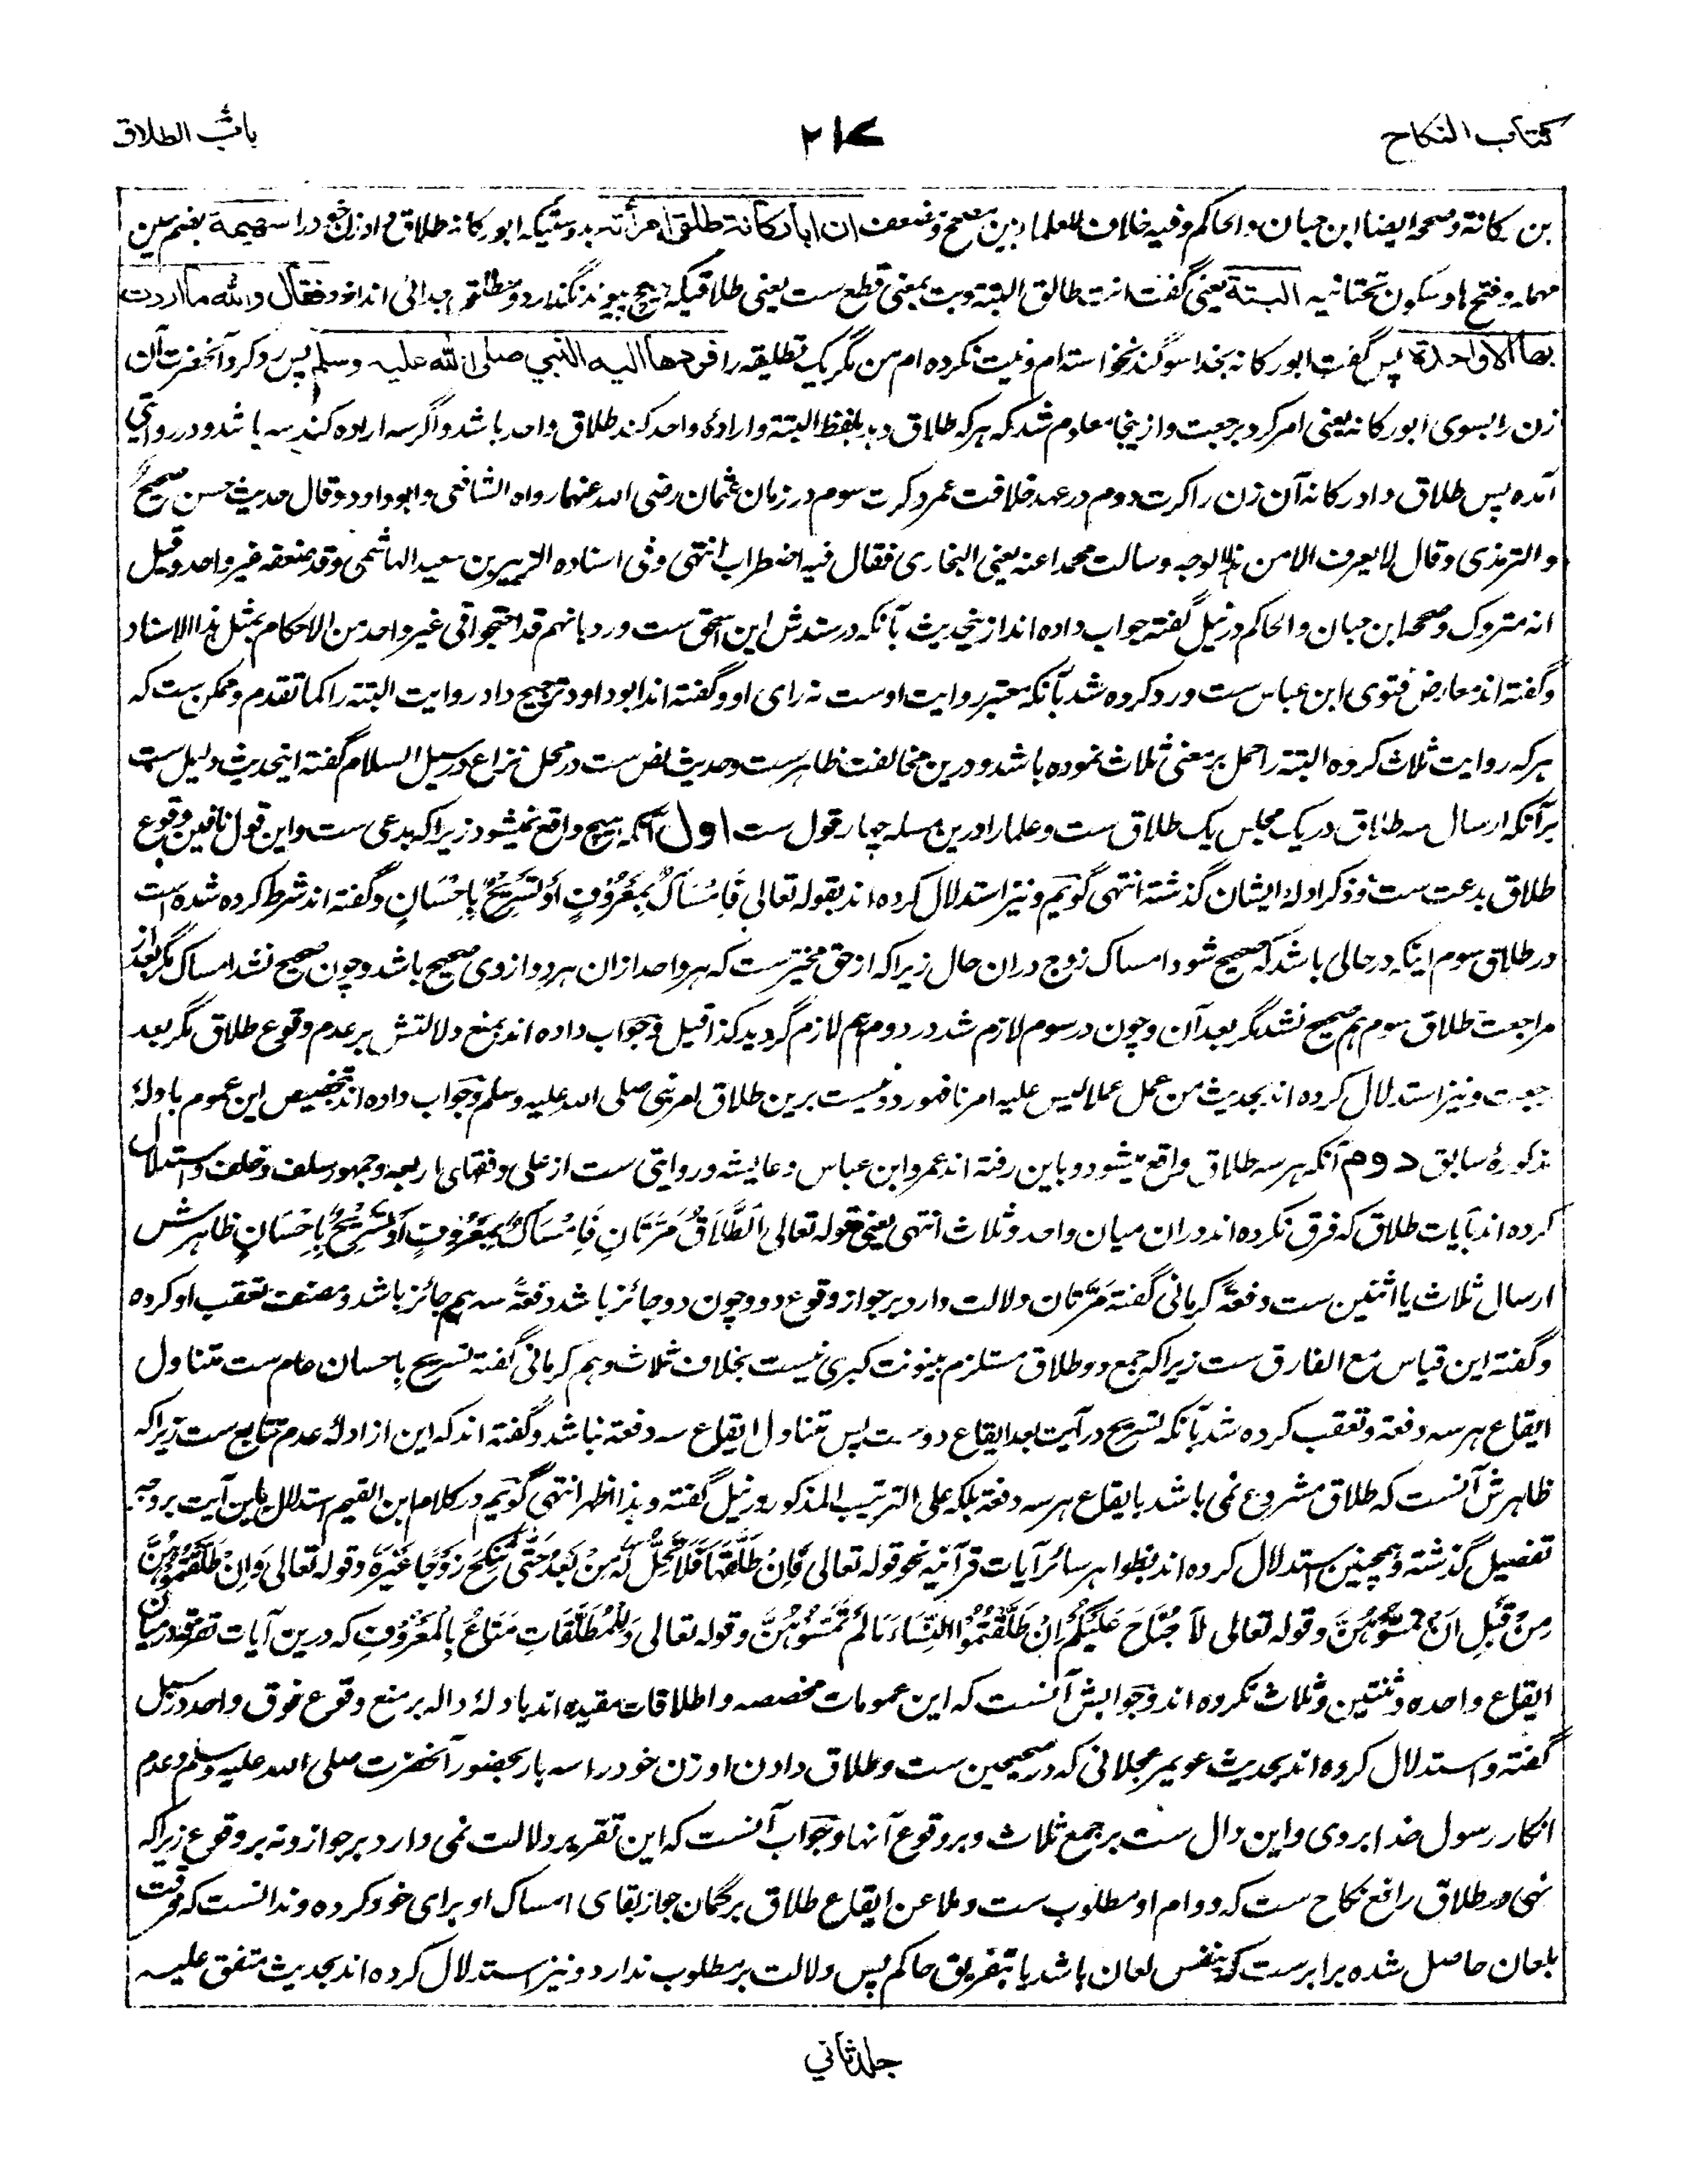 کتاب النکاح
۲۱۷
باب الطلاق
بن رکانة وصححه ایضا ابن حبان والحاکم وفیه خلاف للعلما بین مصحح ومضعف ان ابا رکانة طلق امرأته بدرستیکه ابو رکانه طلاق داد زن خود را سهیمة بضم سین
مهمله وفتح ها وسکون تحتانیه البتة یعنی گفت انت طالق البتة وبت بمعنی قطع ست یعنی طلاقیکه هیچ پیوند نگذارد و مطلقا جدائی اندازد فقال والله ما اردت
بها الا واحدة پس گفت ابو رکانه بخدا سوگند نخواسته ام ونیت نکرده ام من مگر یک تطلیقه را فردها الیه النبي صلی الله علیه وسلم پس رد کرد آنحضرت آن
زن را بسوی ابو رکانه یعنی امر کرد برجعت وازینجا معلوم شد که هر که طلاق دهد بلفظ البتة وارادۀ واحد کند طلاق واحد باشد واگر سه اراده کند سه باشد ودر روایتی
آمده پس طلاق داد رکانه آن زن را کرت دوم در عهد خلافت عمر وکرت سوم در زمان عثمان رضی الله عنهما رواه الشافعی وابو داود وقال حدیث حسن صحیح
والترمذی وقال لا یعرف الا من هذا الوجه وسالت محمدا عنه یعنی البخاری فقال فیه اضطراب انتهی وفی اسناده الزبیر بن سعید الهاشمی وقد ضعفه غیر واحد وقیل
انه متروک وصححه ابن حبان والحاکم در نیل گفته جواب داده اند ازین حدیث بآنکه در سندش ابن اسحق ست ورد بانهم قد احتجوا فی غیر واحد من الاحکام بمثل هذا الاسناد
وگفته اند معارض فتوی ابن عباس ست ورد کرده شد بآنکه معتبر روایت اوست نه رای او وگفته اند ابو داود ترجیح داد روایت البتة را کما تقدم وممکن ست که
هر که روایت ثلاث کرده البتة را حمل بر معنی ثلاث نموده باشد ودرین مخالفت ظاهرست وحدیث نص ست در محل نزاع ودر سبل السلام گفته اینحدیث دلیل ست
برآنکه ارسال سه طلاق در یک مجلس یک طلاق ست وعلما را درین مسله چهار قول ست اول آنکه هیچ واقع نمیشود زیرا که بدعی ست واین قول نافین وقوع
طلاق بدعت ست وذکر ادله ایشان گذشته انتهی گویم ونیز استدلال کرده اند بقوله تعالی فَاِمْسَاكٌ بِمَعْرُوْفٍ اَوْ تَسْرِیْحٌ بِاِحْسَانٍ وگفته اند شرط کرده شده است
در طلاق سوم اینکه در حالی باشد که صحیح شود امساک زوج دران حال زیرا که از حق مخیر ست که هر واحد ازان هر دو ازوی صحیح باشد وچون صحیح نشد امساک مگر بعد از
مراجعت طلاق سوم هم صحیح نشد مگر بعد آن وچون در سوم لازم شد در دوم هم لازم گردید کذا قیل وجواب داده اند بمنع دلالتش بر عدم وقوع طلاق مگر بعد
رجعت ونیز استدلال کرده اند بحدیث من عمل عملا لیس علیه امرنا فهو رد ونیست برین طلاق امر نبی صلی الله علیه وسلم وجواب داده اند بتخصیص این عموم بادلۀ
مذکورۀ سابق دوم آنکه هر سه طلاق واقع میشود وباین رفته اند عمر وابن عباس وعایشه وروایتی ست از علی وفقهای اربعه وجمهور سلف وخلف واستدلال
کرده اند بآیات طلاق که فرق نکرده اند دران میان واحد وثلاث انتهی یعنی قوله تعالی اَلطَّلَاقُ مَرَّتَانِ فَاِمْسَاكٌ بِمَعْرُوْفٍ اَوْ تَسْرِیْحٌ بِاِحْسَانٍ ظاهرش
ارسال ثلاث یا اثنین ست دفعةً کرمانی گفته مَرَّتان دلالت دارد بر جواز وقوع دو وچون دو جائز باشد دفعةً سه هم جائز باشد ومصنف تعقب او کرده
وگفته این قیاس مع الفارق ست زیرا که جمع دو طلاق مستلزم بینونت کبری نیست بخلاف ثلاث وهم کرمانی گفته تسریح باحسان عام ست متناول
ایقاع هر سه دفعة وتعقب کرده شد بآنکه تسریح در آیت بعد ایقاع دوست پس متناول ایقاع سه دفعة نباشد وگفته اند که این از ادلۀ عدم تتابع ست زیرا که
ظاهرش آنست که طلاق مشروع نمی باشد بایقاع هر سه دفعة بلکه علی الترتیب المذکور ودر نیل گفته وهذا اظهر انتهی گویم در کلام ابن القیم استدلال باین آیت بر وجه
تفصیل گذشته وهمچنین استدلال کرده اند بظواهر سائر آیات قرآنیه نحو قوله تعالی فَاِنْ طَلَّقَهَا فَلَا تَحِلُّ لَهٗ مِنْ بَعْدُ حَتّٰی تَنْکِحَ زَوْجًا غَیْرَهٗ وقوله تعالی وَاِنْ طَلَّقْتُمُوْهُنَّ
مِنْ قَبْلِ اَنْ تَمَسُّوْهُنَّ وقوله تعالی لَا جُنَاحَ عَلَیْکُمْ اِنْ طَلَّقْتُمُ النِّسَاءَ مَا لَمْ تَمَسُّوْهُنَّ وقوله تعالی وَلِلْمُطَلَّقَاتِ مَتَاعٌ بِالْمَعْرُوْفِ که درین آیات تفرقه در میان
ایقاع واحده وثنتین وثلاث نکرده اند وجوابش آنست که این عمومات مخصصه واطلاقات مقیده اند بادلۀ داله بر منع وقوع فوق واحد در سبل
گفته واستدلال کرده اند بحدیث عویمر عجلانی که در صحیحین ست وطلاق دادن او زن خود را سه بار بحضور آنحضرت صلی الله علیه وسلم وعدم
انکار رسول خدا بروی واین دال ست بر جمع ثلاث وبر وقوع آنها وجواب آنست که این تقریر دلالت نمی دارد بر جواز ونه بر وقوع زیرا که
نهی در طلاق رافع نکاح ست که دوام او مطلوب ست وملاعن ایقاع طلاق بر گمان جواز بقای امساک او برای خود کرده وندانست که فرقت
بلعان حاصل شده برابرست که بنفس لعان باشد یا بتفریق حاکم پس دلالت بر مطلوب ندارد ونیز استدلال کرده اند بحدیث متفق علیه
جلد ثانی